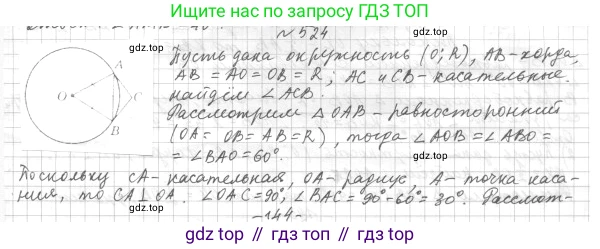 Ищите нас по запросу
ГДЗ ТОП
№ 524
Пусть дана окружность (O; R), AB-хорда,
AB = AO = OB = R; AC и CB-касательные.
найдём ∠ACB.
Рассмотрим △ OAB-равносторонний
(OA = OB = AB = R), тогда ∠AOB = ∠ABO =
= ∠BAO = 60°.
A
O
C
B
Поскольку CA-касательная, OA-радиус, A-точка каса-
ния, то CA⊥OA. ∠OAC = 90°, ∠BAC = 90°-60° = 30°. Рассмот-
-144-
gdz.top // gdz.top // gdz.top